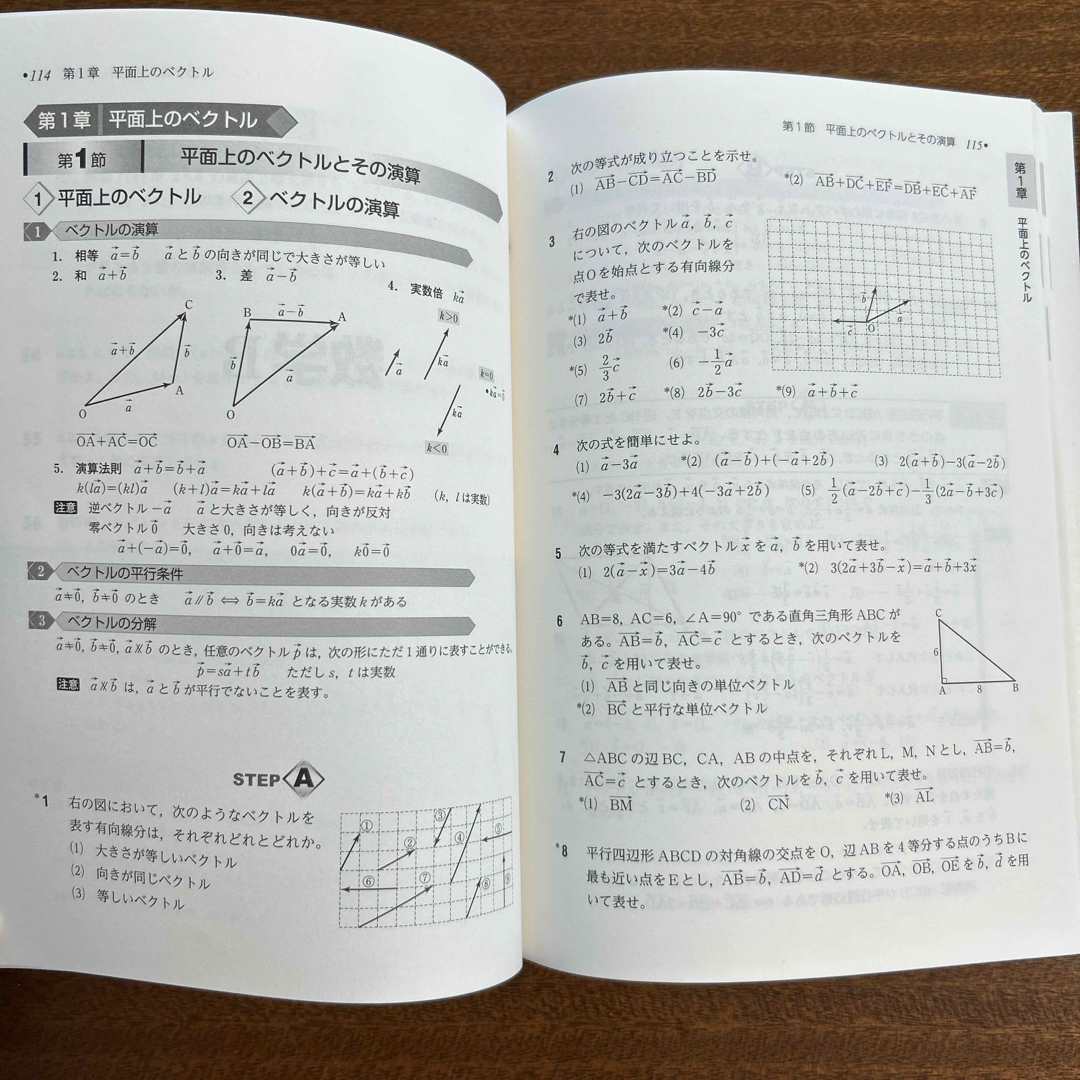 •114 第1章 平面上のベクトル
第1章 平面上のベクトル
第1節 平面上のベクトルとその演算
1 平面上のベクトル 2 ベクトルの演算
1 ベクトルの演算
1. 相等 a⃗=b⃗ a⃗とb⃗の向きが同じで大きさが等しい
2. 和 a⃗+b⃗ 3. 差 a⃗−b⃗ 4. 実数倍 ka⃗
C B a⃗−b⃗ A k>0
a⃗+b⃗ b⃗ b⃗ a⃗ a⃗ ka⃗ k=0
A •ka⃗=0⃗
O a⃗ O ka⃗
k<0
OA⃗+AC⃗=OC⃗ OA⃗−OB⃗=BA⃗
5. 演算法則 a⃗+b⃗=b⃗+a⃗ (a⃗+b⃗)+c⃗=a⃗+(b⃗+c⃗)
k(la⃗)=(kl)a⃗ (k+l)a⃗=ka⃗+la⃗ k(a⃗+b⃗)=ka⃗+kb⃗ (k, lは実数)
注意 逆ベクトル −a⃗ a⃗と大きさが等しく，向きが反対
零ベクトル 0⃗ 大きさ0, 向きは考えない
a⃗+(−a⃗)=0⃗, a⃗+0⃗=a⃗, 0a⃗=0⃗, k0⃗=0⃗
2 ベクトルの平行条件
a⃗≠0⃗, b⃗≠0⃗ のとき a⃗∥b⃗ ⟺ b⃗=ka⃗ となる実数kがある
3 ベクトルの分解
a⃗≠0⃗, b⃗≠0⃗, a⃗∦b⃗ のとき, 任意のベクトルp⃗は, 次の形にただ1通りに表すことができる。
p⃗=sa⃗+tb⃗ ただし s, t は実数
注意 a⃗∦b⃗ は, a⃗とb⃗が平行でないことを表す。
STEP A
*1 右の図において，次のようなベクトルを
表す有向線分は，それぞれどれとどれか。
(1) 大きさが等しいベクトル
(2) 向きが同じベクトル
(3) 等しいベクトル
① ② ③ ④ ⑤
⑥ ⑦ ⑧ ⑨
第1節 平面上のベクトルとその演算 115•
第1章 平面上のベクトル
2 次の等式が成り立つことを示せ。
(1) AB⃗−CD⃗=AC⃗−BD⃗ *(2) AB⃗+DC⃗+EF⃗=DB⃗+EC⃗+AF⃗
3 右の図のベクトル a⃗, b⃗, c⃗
について，次のベクトルを
点Oを始点とする有向線分
で表せ。
*(1) a⃗+b⃗ *(2) c⃗−a⃗
(3) 2b⃗ *(4) −3c⃗
*(5) 2/3 c⃗ (6) −1/2 a⃗
(7) 2b⃗+c⃗ *(8) 2b⃗−3c⃗ *(9) a⃗+b⃗+c⃗
b⃗ a⃗ c⃗ O
4 次の式を簡単にせよ。
(1) a⃗−3a⃗ *(2) (a⃗−b⃗)+(−a⃗+2b⃗) (3) 2(a⃗+b⃗)−3(a⃗−2b⃗)
*(4) −3(2a⃗−3b⃗)+4(−3a⃗+2b⃗) (5) 1/2(a⃗−2b⃗+c⃗)−1/3(2a⃗−b⃗+3c⃗)
5 次の等式を満たすベクトル x⃗ を a⃗, b⃗ を用いて表せ。
(1) 2(a⃗−x⃗)=3a⃗−4b⃗ *(2) 3(2a⃗+3b⃗−x⃗)=a⃗+b⃗+3x⃗
6 AB=8, AC=6, ∠A=90° である直角三角形 ABC が
ある。AB⃗=b⃗, AC⃗=c⃗ とするとき，次のベクトルを
b⃗, c⃗ を用いて表せ。
(1) AB⃗ と同じ向きの単位ベクトル
*(2) BC⃗ と平行な単位ベクトル
C
6
A 8 B
7 △ABC の辺 BC, CA, AB の中点を，それぞれ L, M, N とし，AB⃗=b⃗,
AC⃗=c⃗ とするとき，次のベクトルを b⃗, c⃗ を用いて表せ。
*(1) BM⃗ (2) CN⃗ *(3) AL⃗
*8 平行四辺形 ABCD の対角線の交点を O, 辺 AB を4等分する点のうちBに
最も近い点をEとし，AB⃗=b⃗, AD⃗=d⃗ とする。OA⃗, OB⃗, OE⃗ を b⃗, d⃗ を用
いて表せ。